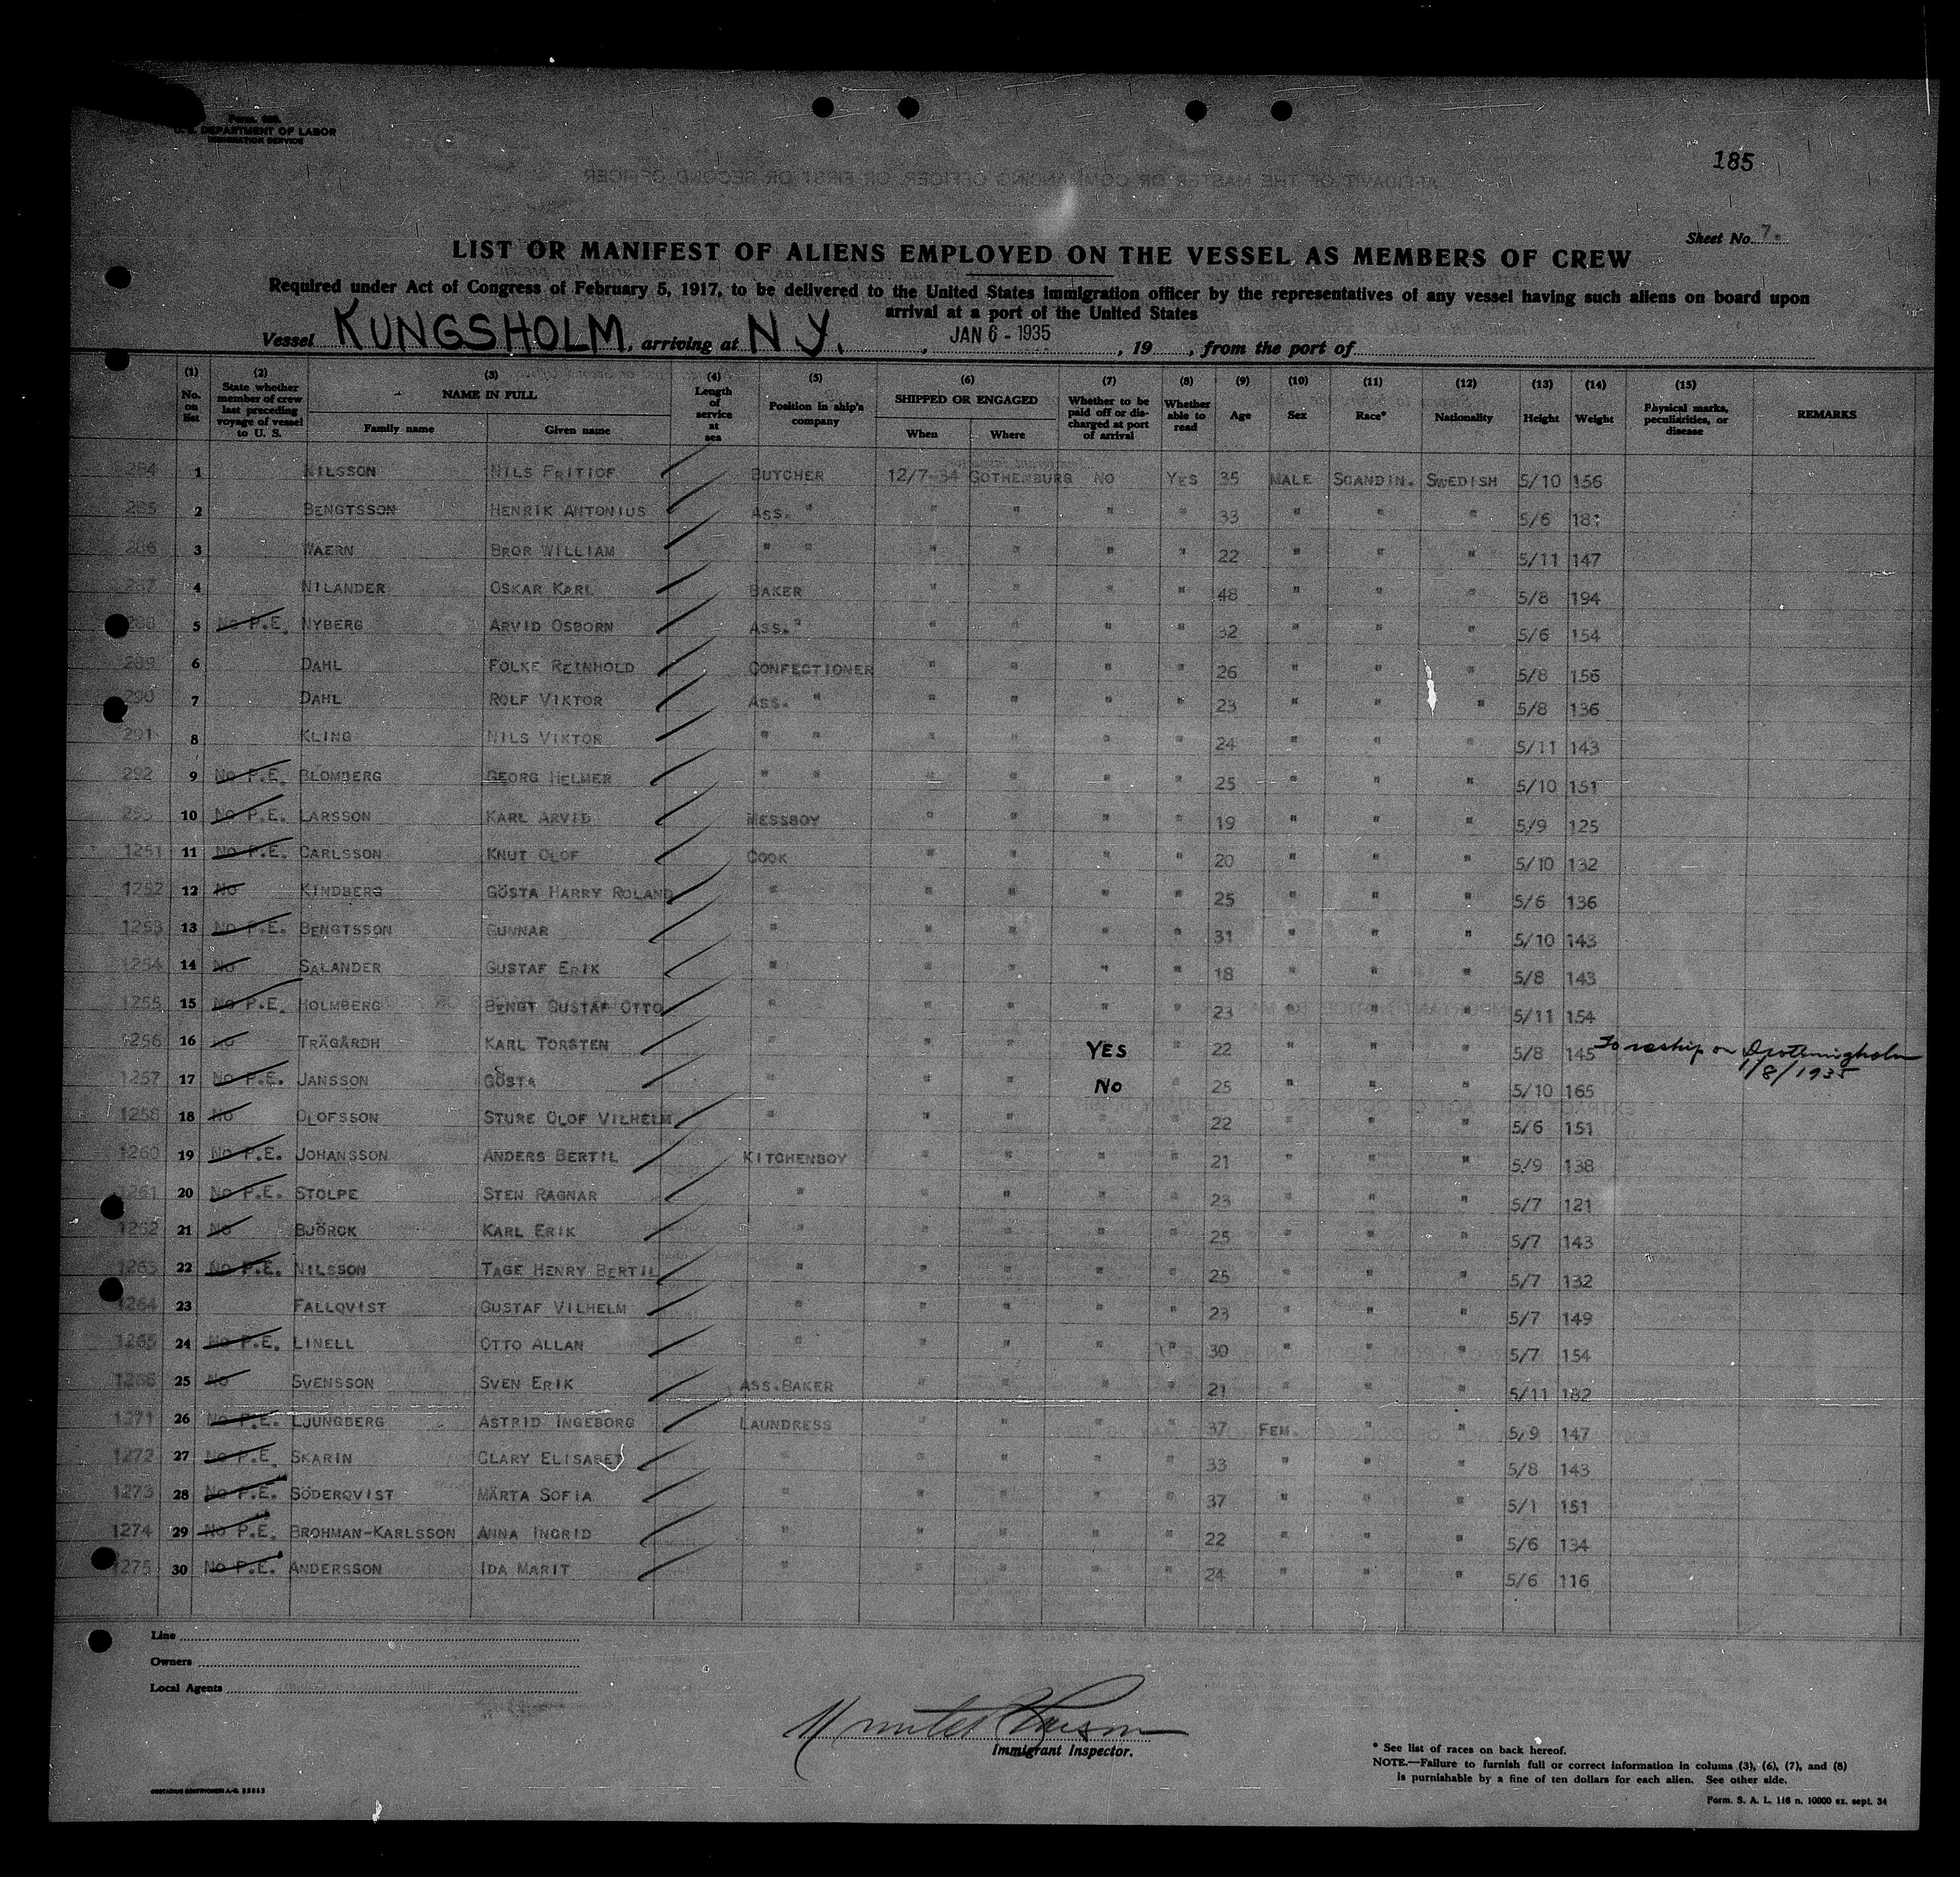 Form. 689.
U. S. DEPARTMENT OF LABOR
IMMIGRATION SERVICE
185
AFFIDAVIT OF THE MASTER OR COMMANDING OFFICER, OR FIRST OR SECOND OFFICER
Sheet No. 7.
LIST OR MANIFEST OF ALIENS EMPLOYED ON THE VESSEL AS MEMBERS OF CREW
Required under Act of Congress of February 5, 1917, to be delivered to the United States immigration officer by the representatives of any vessel having such aliens on board upon
arrival at a port of the United States
Vessel KUNGSHOLM, arriving at N Y. , JAN 6 - 1935 , 19 , from the port of
(1) No. on list (2) State whether member of crew last preceding voyage of vessel to U. S. (3) NAME IN FULL Family name Given name (4) Length of service at sea (5) Position in ship's company (6) SHIPPED OR ENGAGED When Where (7) Whether to be paid off or discharged at port of arrival (8) Whether able to read (9) Age (10) Sex (11) Race* (12) Nationality (13) Height (14) Weight (15) Physical marks, peculiarities, or disease REMARKS
284 1 NILSSON NILS FRITIOF BUTCHER 12/7-34 GOTHENBURG NO YES 35 MALE SCANDIN. SWEDISH 5/10 156
285 2 BENGTSSON HENRIK ANTONIUS ASS. " " " " " 33 " " " 5/6
286 3 WAERN BROR WILLIAM " " " " " " 22 " " " 5/11 147
287 4 NILANDER OSKAR KARL BAKER " " " " 48 " " " 5/8 194
288 5 No P.E. NYBERG ARVID OSBORN ASS. " " " " " 32 " " " 5/6 154
289 6 DAHL FOLKE REINHOLD CONFECTIONER " " " " 26 " " " 5/8 156
290 7 DAHL ROLF VIKTOR ASS. " " " " " 23 " " " 5/8 136
291 8 KLING NILS VIKTOR " " " " " " 24 " " " 5/11 143
292 9 No P.E. BLOMBERG GEORG HELMER " " " " " " 25 " " " 5/10 151
293 10 No P.E. LARSSON KARL ARVID MESSBOY " " " " 19 " " " 5/9 125
1251 11 No P.E. CARLSSON KNUT OLOF COOK " " " " 20 " " " 5/10 132
1252 12 No KINDBERG GÖSTA HARRY ROLAND " " " " " 25 " " " 5/6 136
1253 13 No P.E. BENGTSSON GUNNAR " " " " " 31 " " " 5/10 143
1254 14 No SALANDER GUSTAF ERIK " " " " " 18 " " " 5/8 143
1255 15 No P.E. HOLMBERG BENGT GUSTAF OTTO " " " " " 23 " " " 5/11 154
1256 16 No TRÄGÅRDH KARL TORSTEN " " " YES " 22 " " " 5/8 145 To reship on Drottningholm
1/8/1935
1257 17 No P.E. JANSSON GÖSTA " " " No " 25 " " " 5/10 165
1258 18 No OLOFSSON STURE OLOF VILHELM " " " " " 22 " " " 5/6 151
1260 19 No P.E. JOHANSSON ANDERS BERTIL KITCHENBOY " " " " 21 " " " 5/9 138
1261 20 No P.E. STOLPE STEN RAGNAR " " " " " 23 " " " 5/7 121
1262 21 No BJÖRCK KARL ERIK " " " " " 25 " " " 5/7 143
1263 22 No P.E. NILSSON TAGE HENRY BERTIL " " " " " 25 " " " 5/7 132
1264 23 FALLQVIST GUSTAF VILHELM " " " " " 23 " " " 5/7 149
1265 24 No P.E. LINELL OTTO ALLAN " " " " " 30 " " " 5/7 154
1266 25 No SVENSSON SVEN ERIK ASS.BAKER " " " " 21 " " " 5/11 182
1271 26 No P.E. LJUNGBERG ASTRID INGEBORG LAUNDRESS " " " " 37 FEM. " " 5/9 147
1272 27 No P.E. SKARIN CLARY ELISABET " " " " " 33 " " " 5/8 143
1273 28 No P.E. SÖDERQVIST MÄRTA SOFIA " " " " " 37 " " " 5/1 151
1274 29 No P.E. BROHMAN-KARLSSON ANNA INGRID " " " " " 22 " " " 5/6 134
1275 30 No P.E. ANDERSSON IDA MARIT " " " " " 24 " " " 5/6 116
Line
Owners
Local Agents
Immigrant Inspector.
* See list of races on back hereof.
NOTE.—Failure to furnish full or correct information in colums (3), (6), (7), and (8)
is purnishable by a fine of ten dollars for each alien. See other side.
Form. S. A. L. 116 n. 10000 ex. sept. 34